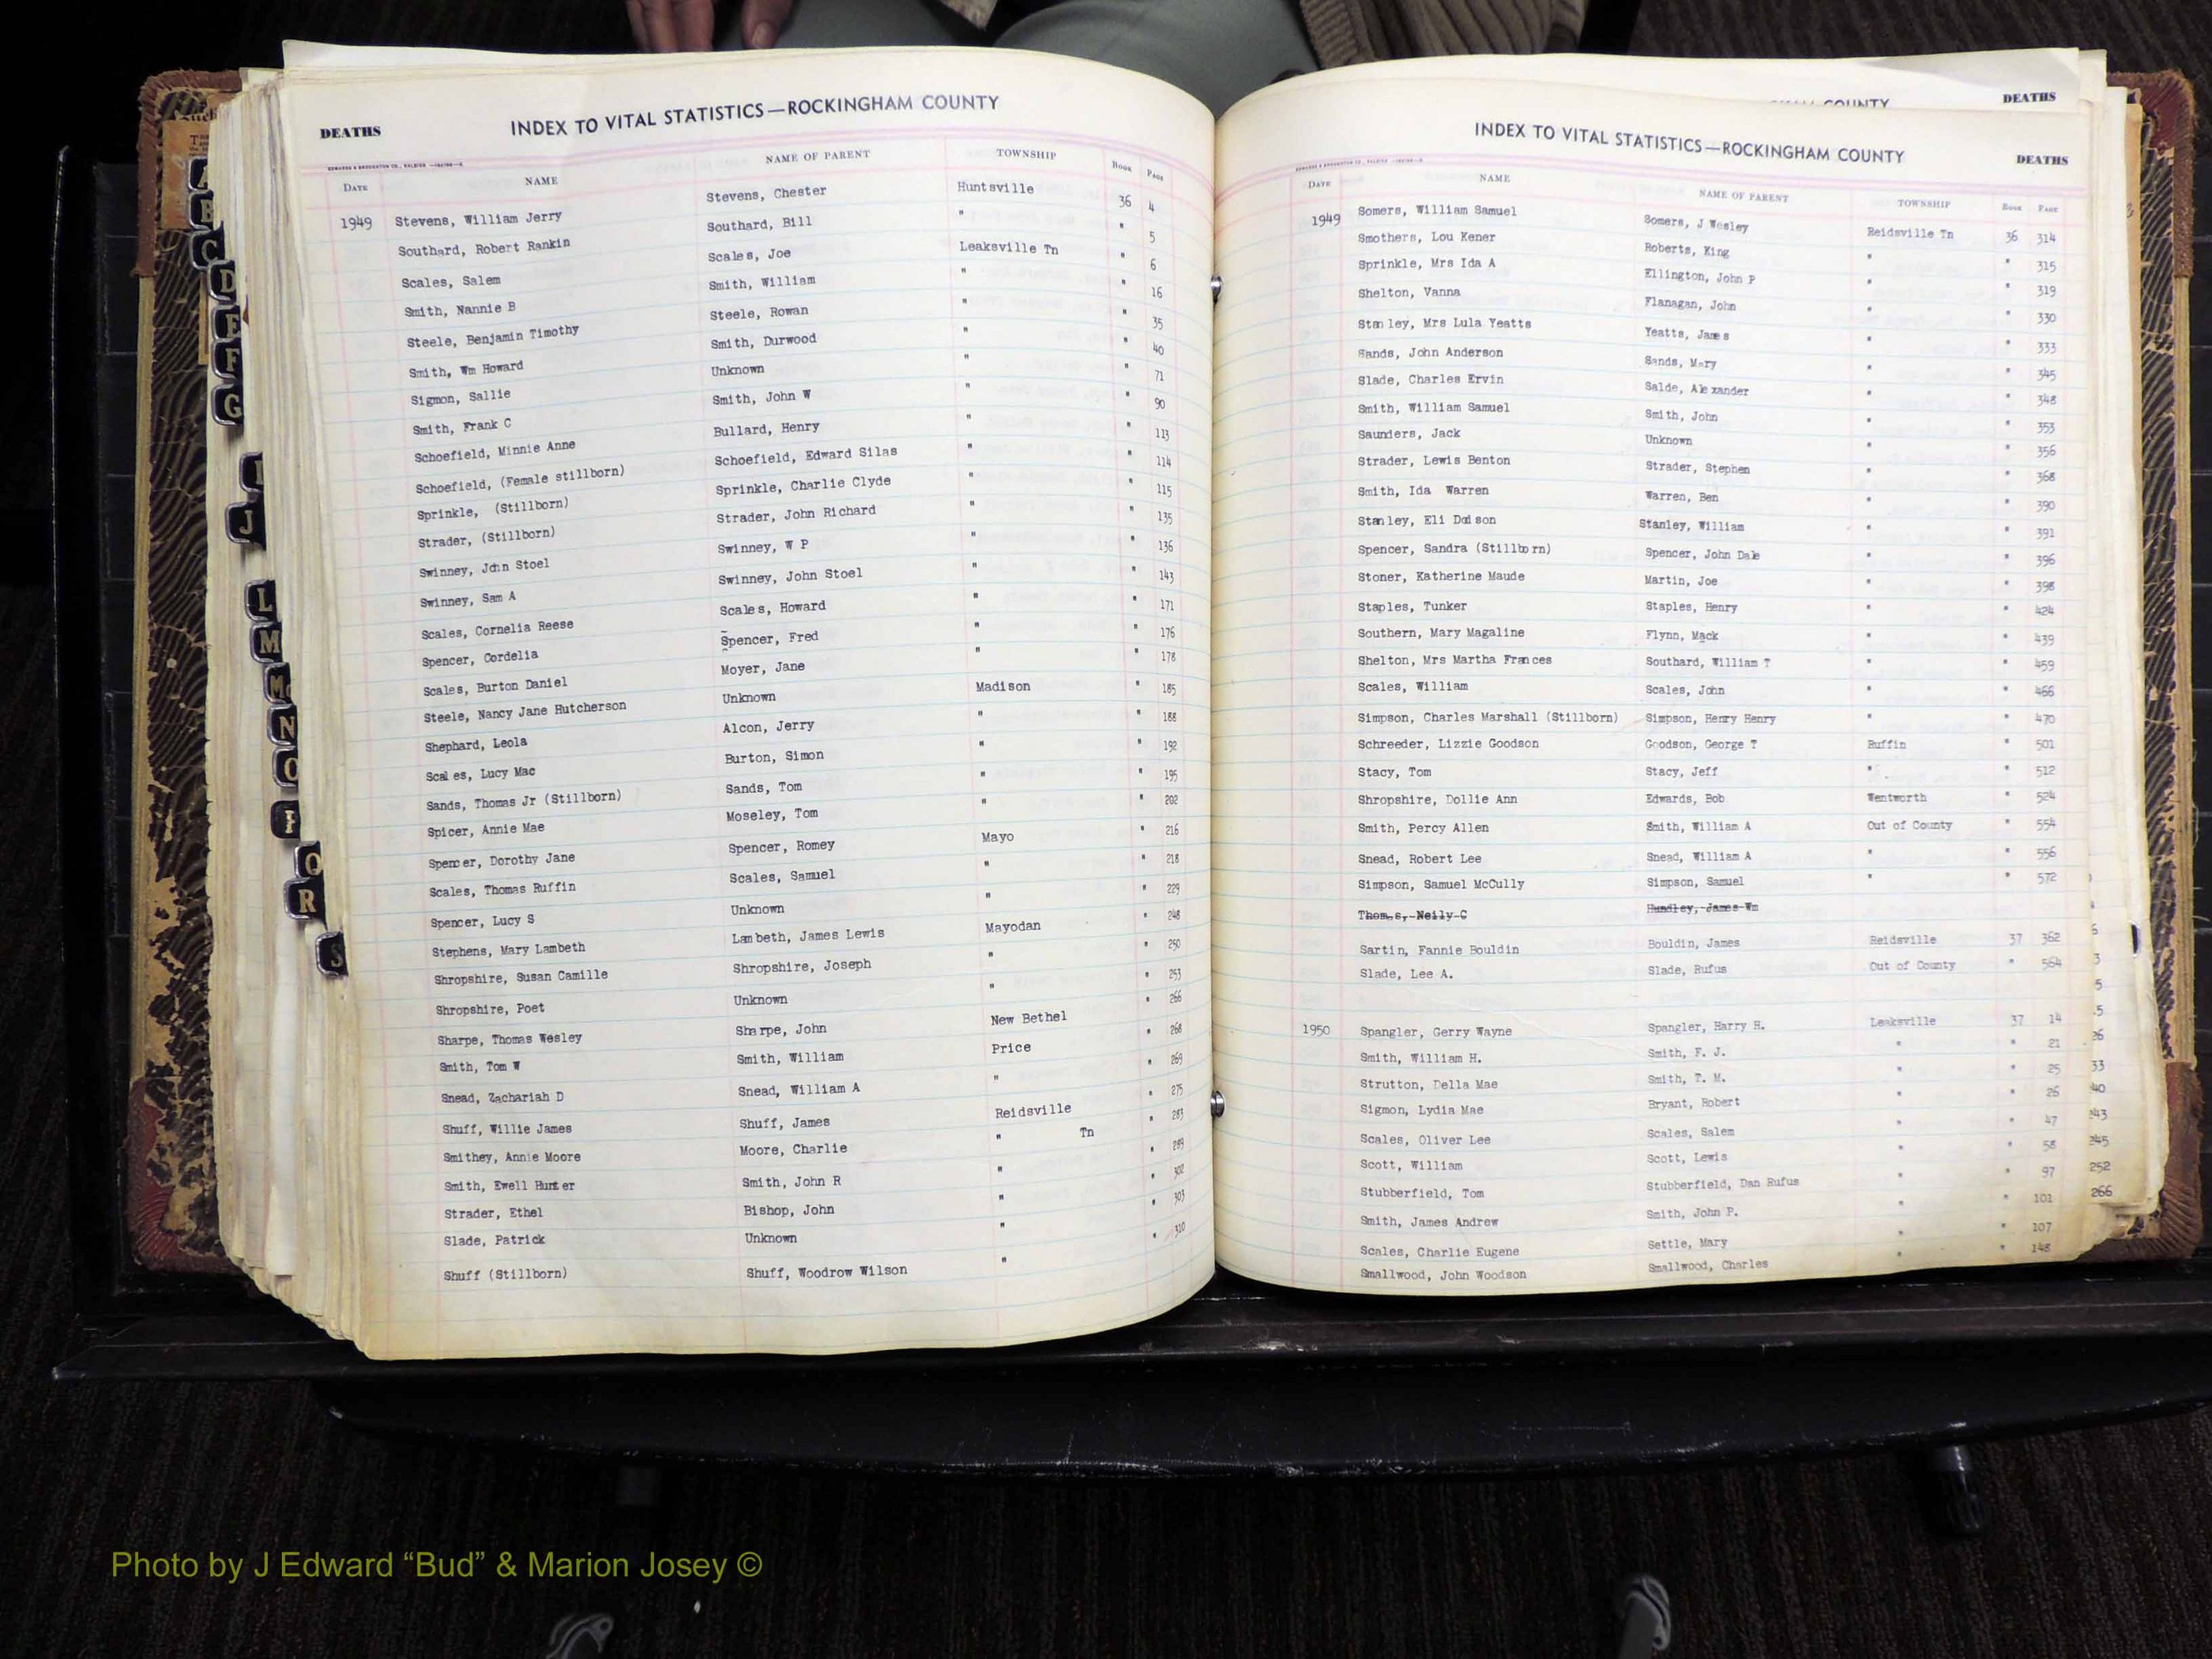 INDEX TO VITAL STATISTICS—ROCKINGHAM COUNTY
DEATHS
DATE NAME NAME OF PARENT TOWNSHIP BOOK PAGE
1949 Stevens, William Jerry Stevens, Chester Huntsville 36 4
Southard, Robert Rankin Southard, Bill " " 5
Scales, Salem Scales, Joe Leaksville Tn " 6
Smith, Nannie B Smith, William " " 16
Steele, Benjamin Timothy Steele, Rowan " " 35
Smith, Wm Howard Smith, Durwood " " 40
Sigmon, Sallie Unknown " " 71
Smith, Frank C Smith, John W " " 90
Schoefield, Minnie Anne Bullard, Henry " " 113
Schoefield, (Female stillborn) Schoefield, Edward Silas " " 114
Sprinkle, (Stillborn) Sprinkle, Charlie Clyde " " 115
Strader, (Stillborn) Strader, John Richard " " 135
Swinney, John Stoel Swinney, W P " " 136
Swinney, Sam A Swinney, John Stoel " " 143
Scales, Cornelia Reese Scales, Howard " " 171
Spencer, Cordelia Spencer, Fred " " 176
Scales, Burton Daniel Moyer, Jane " " 178
Steele, Nancy Jane Hutcherson Unknown Madison " 185
Shephard, Leola Alcon, Jerry " " 188
Scales, Lucy Mac Burton, Simon " " 192
Sands, Thomas Jr (Stillborn) Sands, Tom " " 195
Spicer, Annie Mae Moseley, Tom " " 202
Spencer, Dorothy Jane Spencer, Romey Mayo " 216
Scales, Thomas Ruffin Scales, Samuel " " 218
Spencer, Lucy S Unknown " " 229
Stephens, Mary Lambeth Lambeth, James Lewis Mayodan " 248
Shropshire, Susan Camille Shropshire, Joseph " " 250
Shropshire, Poet Unknown " " 253
Sharpe, Thomas Wesley Sharpe, John New Bethel " 266
Smith, Tom W Smith, William Price " 268
Snead, Zachariah D Snead, William A " " 269
Shuff, Willie James Shuff, James Reidsville " 275
Smithey, Annie Moore Moore, Charlie " Tn " 283
Smith, Ewell Hunter Smith, John R " " 289
Strader, Ethel Bishop, John " " 302
Slade, Patrick Unknown " " 303
Shuff (Stillborn) Shuff, Woodrow Wilson " " 310
COUNTY DEATHS
INDEX TO VITAL STATISTICS—ROCKINGHAM COUNTY
DEATHS
DATE NAME NAME OF PARENT TOWNSHIP BOOK PAGE
1949 Somers, William Samuel Somers, J Wesley Reidsville Tn 36 314
Smothers, Lou Kener Roberts, King " " 315
Sprinkle, Mrs Ida A Ellington, John P " " 319
Shelton, Vanna Flanagan, John " " 330
Stanley, Mrs Lula Yeatts Yeatts, James " " 333
Sands, John Anderson Sands, Mary " " 345
Slade, Charles Ervin Salde, Alexander " " 348
Smith, William Samuel Smith, John " " 353
Saunders, Jack Unknown " " 356
Strader, Lewis Benton Strader, Stephen " " 368
Smith, Ida Warren Warren, Ben " " 390
Stanley, Eli Dalson Stanley, William " " 391
Spencer, Sandra (Stillborn) Spencer, John Dale " " 396
Stoner, Katherine Maude Martin, Joe " " 398
Staples, Tunker Staples, Henry " " 424
Southern, Mary Magaline Flynn, Mack " " 439
Shelton, Mrs Martha Frances Southard, William T " " 459
Scales, William Scales, John " " 466
Simpson, Charles Marshall (Stillborn) Simpson, Henry Henry " " 470
Schreeder, Lizzie Goodson Goodson, George T Ruffin " 501
Stacy, Tom Stacy, Jeff " " 512
Shropshire, Dollie Ann Edwards, Bob Wentworth " 524
Smith, Percy Allen Smith, William A Out of County " 554
Snead, Robert Lee Snead, William A " " 556
Simpson, Samuel McCully Simpson, Samuel " " 572
Thomas, Neily C Hundley, James Wm
Sartin, Fannie Bouldin Bouldin, James Reidsville 37 362
Slade, Lee A. Slade, Rufus Out of County " 564
1950 Spangler, Gerry Wayne Spangler, Harry H. Leaksville 37 14
Smith, William H. Smith, F. J. " " 21
Strutton, Della Mae Smith, T. M. " " 25
Sigmon, Lydia Mae Bryant, Robert " " 26
Scales, Oliver Lee Scales, Salem " " 47
Scott, William Scott, Lewis " " 58
Stubberfield, Tom Stubberfield, Dan Rufus " " 97
Smith, James Andrew Smith, John P. " " 101
Scales, Charlie Eugene Settle, Mary " " 107
Smallwood, John Woodson Smallwood, Charles " " 148
26
33
40
243
245
252
266
A
B
C
D
E
F
G
I
J
L
M
Mc
N
O
Q
R
S
Photo by J Edward “Bud” & Marion Josey ©